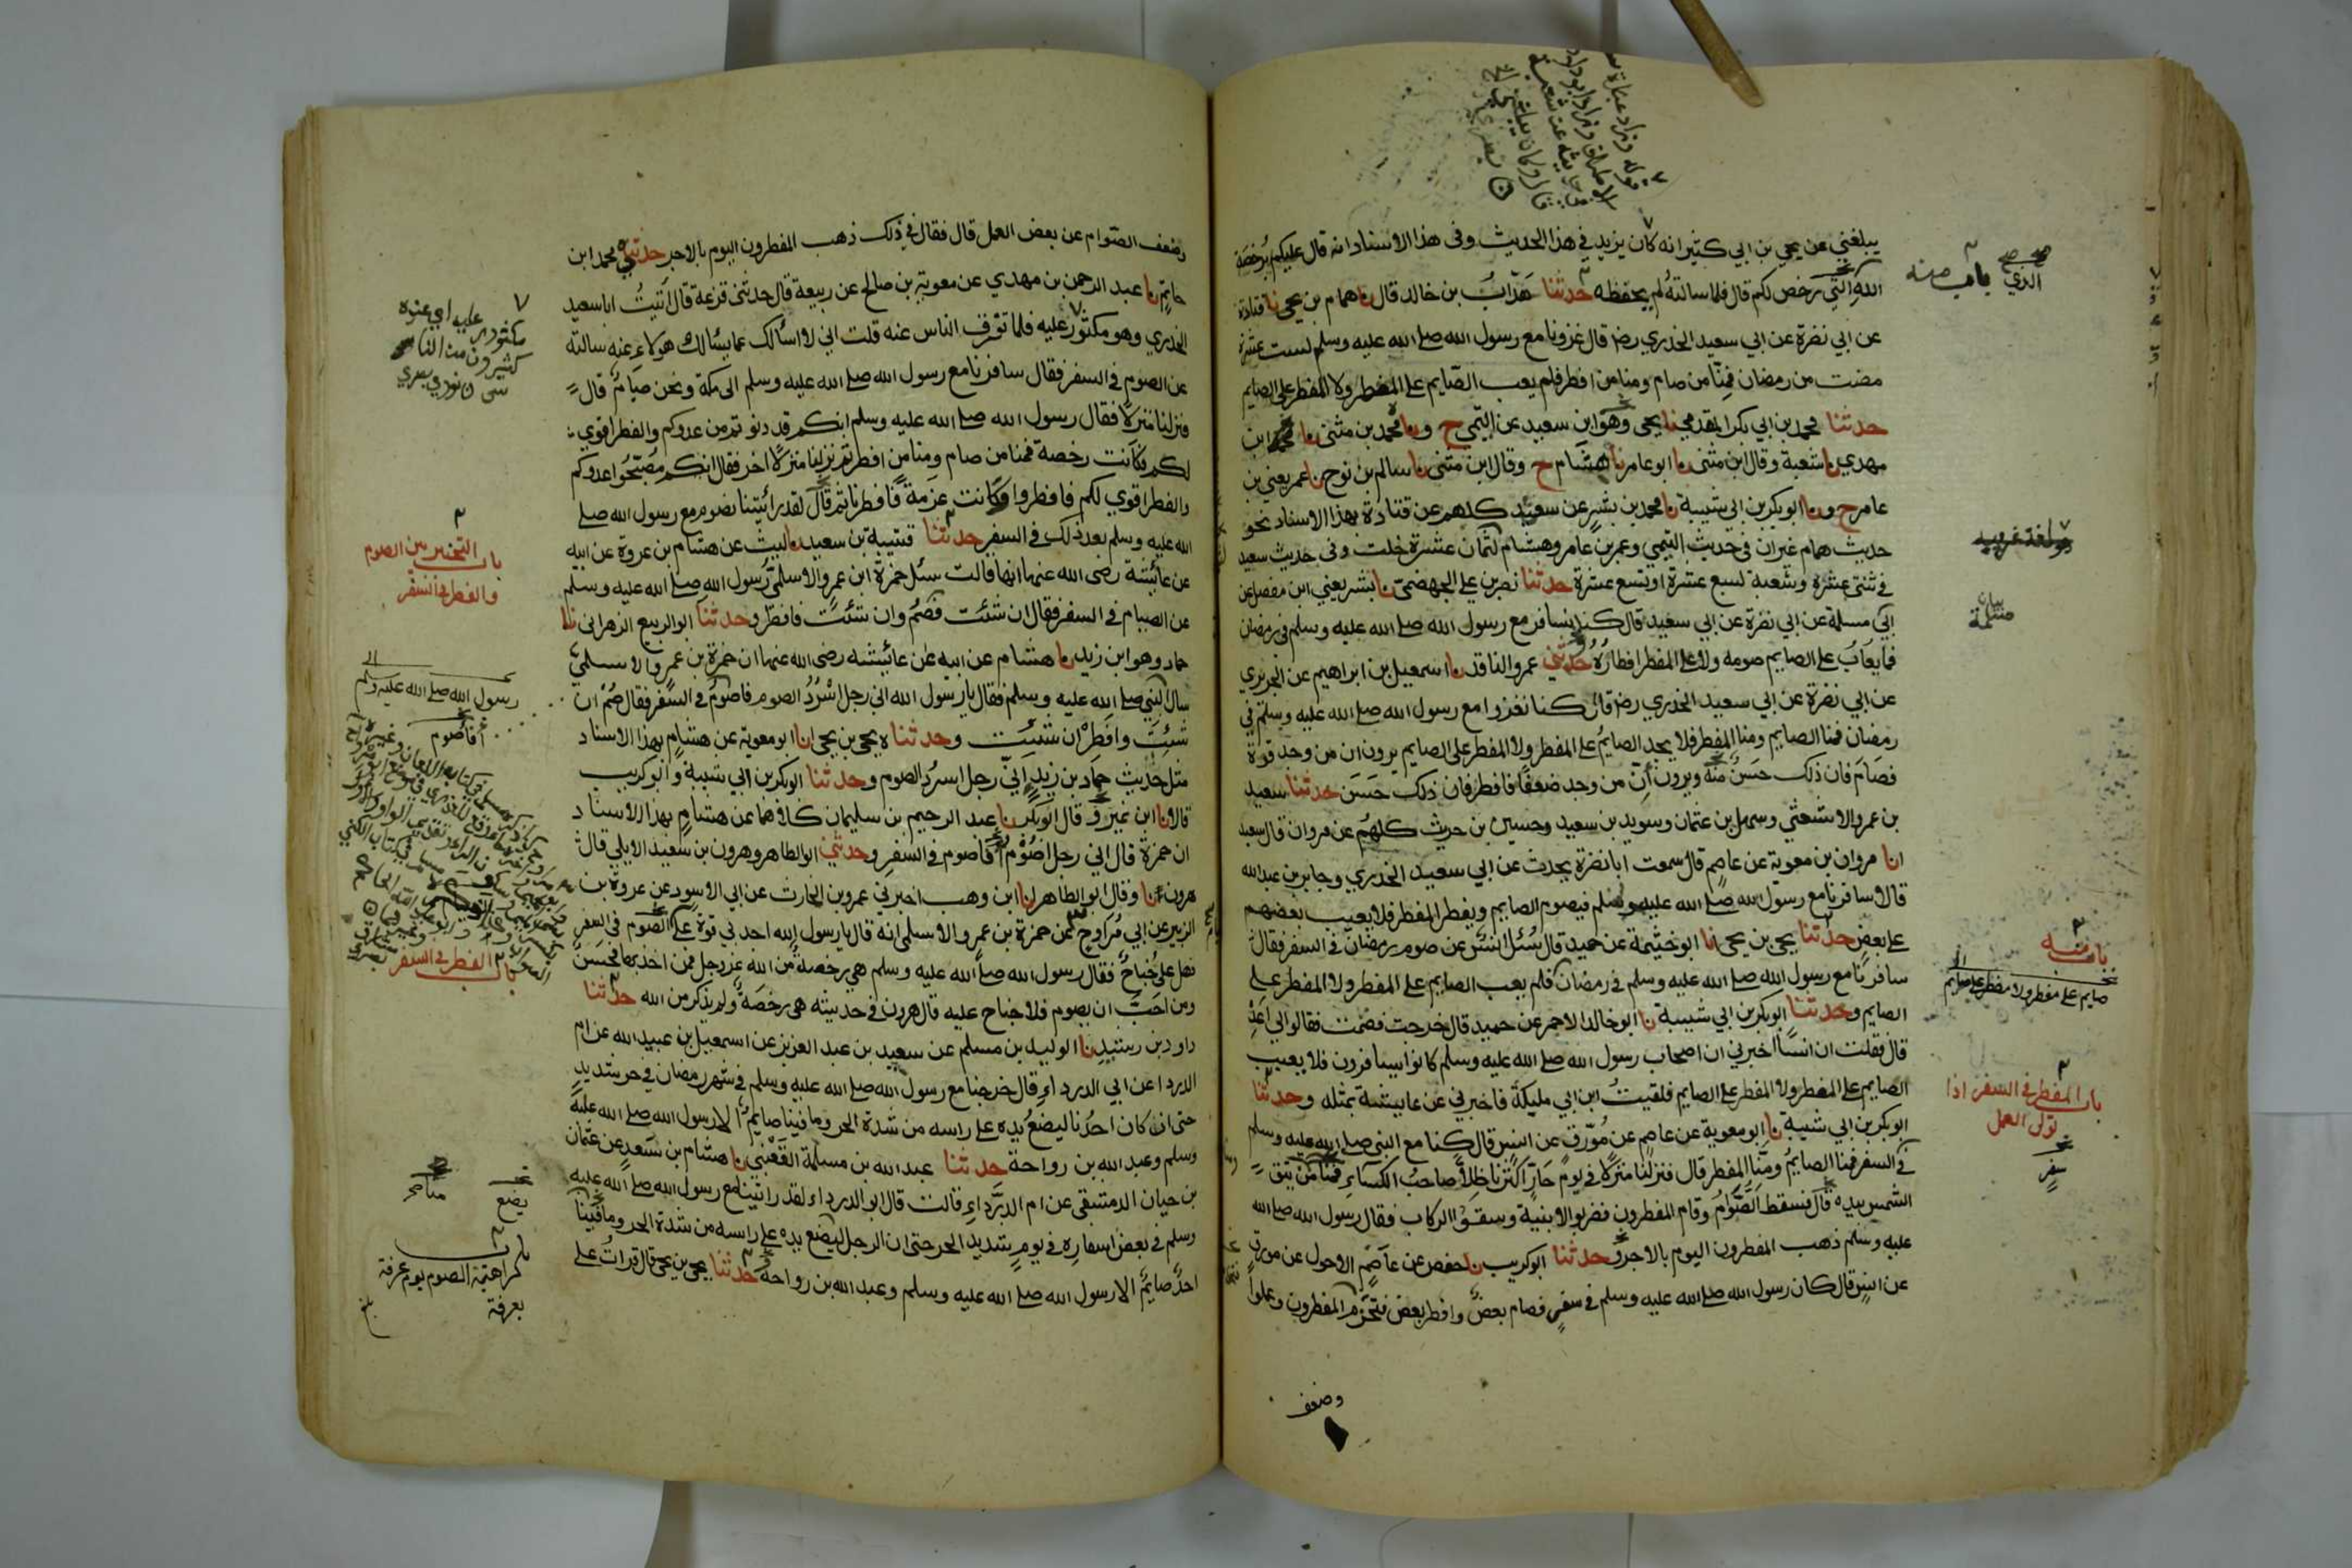 يبلغني عن يحيى بن ابي كثير انه كان يزيد في هذا الحديث وفى هذا الاسناد انه قال عليكم برخصة
الله التي رخص لكم قال فلما سالته لم يحفظه حدثنا هداب بن خالد قال نا همام بن يحيى نا قتادة
عن ابي نضرة عن ابي سعيد الخدري رضـ قال غزونا مع رسول الله صلى الله عليه وسلم لست عشرة
مضت من رمضان فمنا من صام ومنا من افطر فلم يعب الصايم على المفطر ولا المفطر على الصايم
حدثنا محمد بن ابي بكر المقدمي نا يحيى وهو ابن سعيد عن التيمي ح ونا محمد بن مثنى نا ابن
مهدي نا شعبة وقال ابن مثنى نا ابو عامر نا هشام ح وقال ابن مثنى نا سالم بن نوح نا عمر يعني بن
عامر ح ونا ابو بكر بن ابى شيبة نا محمد بن بشر عن سعيد كلهم عن قتادة بهذا الاسناد نحو
حديث همام غير ان فى حديث التيمي وعمر بن عامر وهشام لثمان عشرة خلت وفى حديث سعيد
في ثنتي عشرة وشعبة لسبع عشرة او تسع عشرة حدثنا نصر بن علي الجهضمي نا بشر يعني ابن مفضل عن
ابي مسلمة عن ابي نضرة عن ابي سعيد قال كنا نسافر مع رسول الله صلى الله عليه وسلم فى رمضان
فما يعاب على الصايم صومه ولا على المفطر افطاره حدثني عمرو الناقد نا اسمعيل بن ابراهيم عن الجريري
عن ابي نضرة عن ابي سعيد الخدري رضـ قال كنا نغزوا مع رسول الله صلى الله عليه وسلم في
رمضان فمنا الصايم ومنا المفطر فلا يجد الصايم على المفطر ولا المفطر على الصايم يرون ان من وجد قوة
فصام فان ذلك حسن ويرون ان من وجد ضعفا فافطر فان ذلك حسن حدثنا سعيد
بن عمرو الاشعثي وسهل بن عثمان وسويد بن سعيد وحسين بن حريث كلهم عن مروان قال سعيد
انا مروان بن معوية عن عاصم قال سمعت ابا نضرة يحدث عن ابي سعيد الخدري وجابر بن عبد الله
قالا سافرنا مع رسول الله صلى الله عليه وسلم فيصوم الصايم ويفطر المفطر فلا يعيب بعضهم
على بعض حدثنا يحيى بن يحيى انا ابو خيثمة عن حميد قال سئل انس عن صوم رمضان فى السفر فقال
سافرنا مع رسول الله صلى الله عليه وسلم فى رمضان فلم يعب الصايم على المفطر ولا المفطر على
الصايم وحدثنا ابو بكر بن ابي شيبة نا ابو خالد الاحمر عن حميد قال خرجت فصمت فقالوا لي اعد
قال فقلت ان انسا اخبرني ان اصحاب رسول الله صلى الله عليه وسلم كانوا يسافرون فلا يعيب
الصايم على المفطر ولا المفطر على الصايم فلقيت ابن ابي مليكة فاخبرني عن عايشة بمثله وحدثنا
ابو بكر بن ابي شيبة نا ابو معوية عن عاصم عن مورق عن انس قال كنا مع النبي صلى الله عليه وسلم
فى السفر فمنا الصايم ومنا المفطر قال فنزلنا منزلا في يوم حار اكثرنا ظلا صاحب الكساء فمنا من يتقي
الشمس بيده قال فسقط الصوام وقام المفطرون فضربوا الابنية وسقوا الركاب فقال رسول الله صلى الله
عليه وسلم ذهب المفطرون اليوم بالاجر وحدثنا ابو كريب نا حفص عن عاصم الاحول عن مورق
عن انس قال كان رسول الله صلى الله عليه وسلم في سفر فصام بعض وافطر بعض فتحزم المفطرون وعملوا
وضعف
الذي
باب منه
باب منه
صايم على مفطر ولا مفطر على صايم
باب المفطر فى السفر اذا
تولى العمل
سفر
وضعف الصوام عن بعض العمل قال فقال في ذلك ذهب المفطرون اليوم بالاجر حدثني محمد ابن
حاتم نا عبد الرحمن بن مهدي عن معوية بن صالح عن ربيعة قال حدثنى قزعة قال اتيت ابا سعيد
الخدري وهو مكثور عليه فلما تفرق الناس عنه قلت اني لا اسألك عما يسئالك هولاء عنه سالته
عن الصوم فى السفر فقال سافرنا مع رسول الله صلى الله عليه وسلم الى مكة ونحن صيام قال
فنزلنا منزلا فقال رسول الله صلى الله عليه وسلم انكم قد دنوتم من عدوكم والفطر اقوي
لكم فكانت رخصة فمنا من صام ومنا من افطر ثم نزلنا منزلا اخر فقال انكم مصبحوا عدوكم
والفطر اقوي لكم فافطروا وكانت عزمة فافطرنا ثم قال لقد رأيتنا نصوم مع رسول الله صلى
الله عليه وسلم بعد ذلك فى السفر حدثنا قتيبة بن سعيد نا ليث عن هشام بن عروة عن ابيه
عن عائشة رضى الله عنها انها قالت سئل حمزة ابن عمرو الاسلمي رسول الله صلى الله عليه وسلم
عن الصيام فى السفر فقال ان شئت فصم وان شئت فافطر وحدثنا ابو الربيع الزهرانى نا
حماد وهو ابن زيد نا هشام عن ابيه عن عائيشه رضى الله عنها ان حمزة بن عمرو الاسلمي
سال النبي صلى الله عليه وسلم فقال يا رسول الله اني رجل اسرد الصوم فاصوم فى السفر فقال صم ان
شئت وافطر ان شئت وحدثناه يحيى بن يحيى انا ابو معوية عن هشام بهذا الاسناد
مثل حديث حماد بن زيد اني رجل اسرد الصوم وحدثنا ابو بكر بن ابي شيبة وابو كريب
قالا نا ابن نمير وقال ابو بكر نا عبد الرحيم بن سليمان كلاهما عن هشام بهذا الاسناد
ان حمزة قال اني رجل اصوم أفاصوم فى السفر وحدثني ابو الطاهر وهرون بن سعيد الايلي قال
هرون نا وقال ابو الطاهر انا ابن وهب اخبرني عمرو بن الحارث عن ابي الاسود عن عروة بن
الزبير عن ابي مراوح عن حمزة بن عمرو الاسلمى انه قال يا رسول الله اجد بي قوة على الصوم فى السفر
فهل على جناح فقال رسول الله صلى الله عليه وسلم هي رخصة من الله عز وجل فمن اخذ بها فحسن
ومن احب ان يصوم فلا جناح عليه قال هرون فى حديثه هى رخصة ولم يذكر من الله حدثنا
داود بن رشيد نا الوليد بن مسلم عن سعيد بن عبد العزيز عن اسمعيل بن عبيد الله عن ام
الدردا عن ابي الدرداء قال خرجنا مع رسول الله صلى الله عليه وسلم في شهر رمضان في حر شديد
حتى ان كان احدنا ليضع يده على راسه من شدة الحر وما فينا صايم الا رسول الله صلى الله عليه
وسلم وعبد الله بن رواحة حدثنا عبد الله بن مسلمة القعنبي نا هشام بن سعد عن عثمان
بن حيان الدمشقى عن ام الدرداء قالت قال ابو الدرداء لقد رايتنا مع رسول الله صلى الله عليه
وسلم فى بعض اسفاره فى يوم شديد الحر حتى ان الرجل ليضع يده على راسه من شدة الحر وما فينا
احد صايم الا رسول الله صلى الله عليه وسلم وعبد الله بن رواحة حدثنا يحيى بن يحيى قال قرات على
مكثور عليه اي عنده
كثيرون من الناس
باب التخيير بين الصوم
والفطر فى السفر
رسول الله صلى الله عليه وسلم
أفاصوم
باب الفطر فى السفر
يضع
باب
كراهية الصوم يوم عرفة
بعرفة